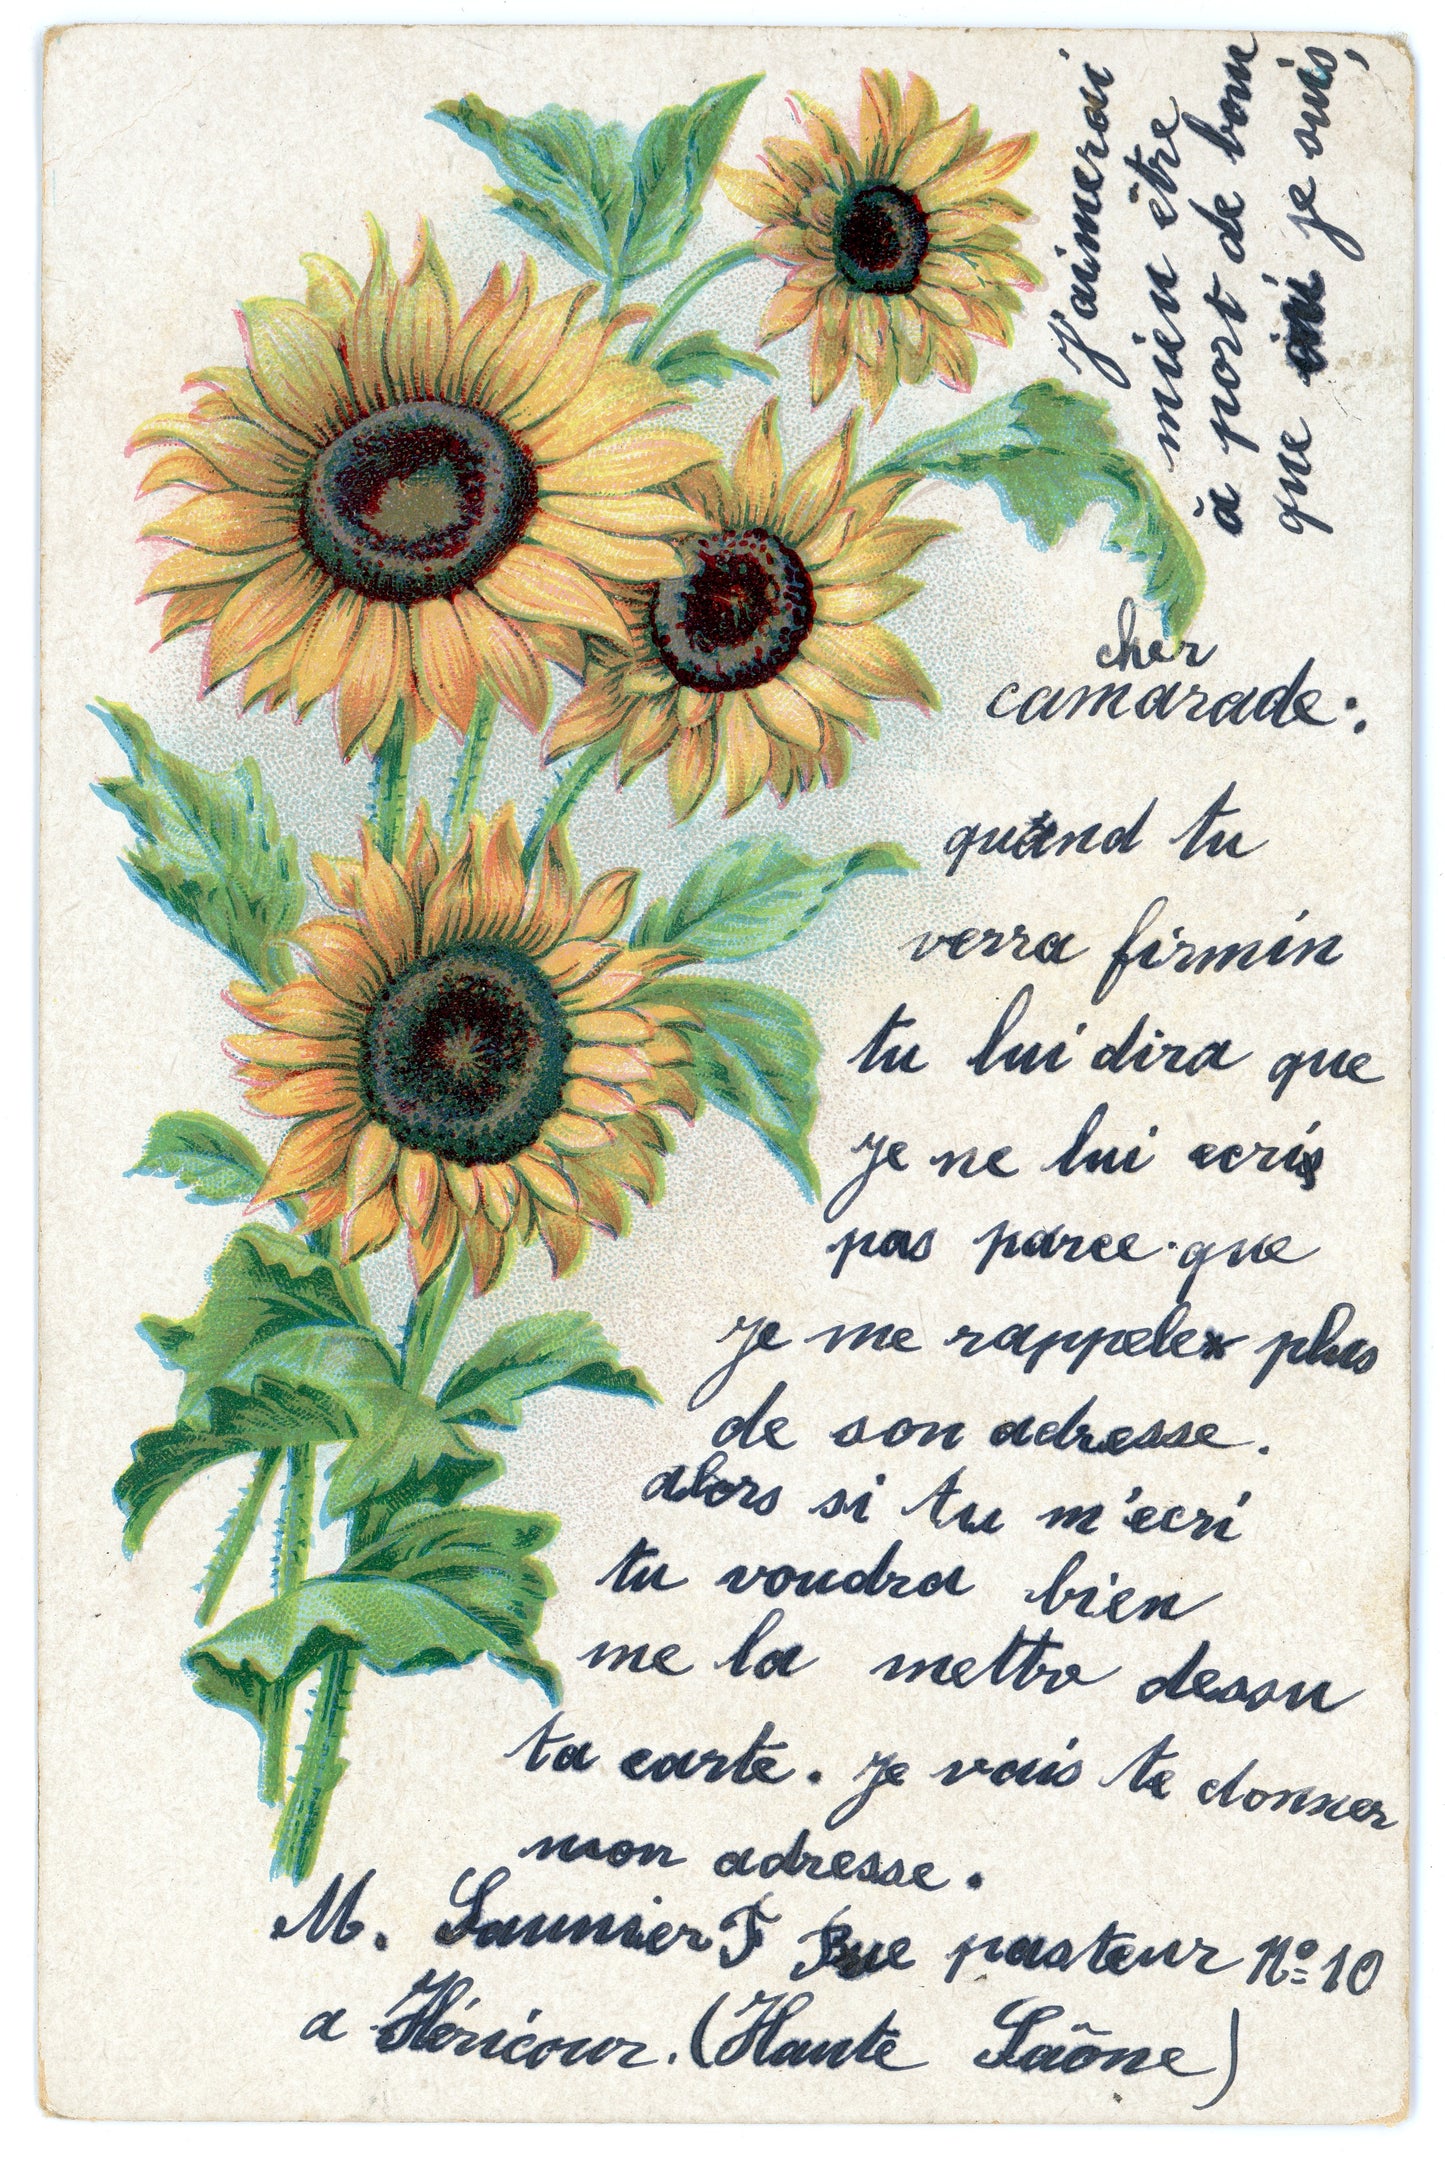 cher
camarade :
quand tu
verra firmin
tu lui dira que
je ne lui ecris
pas parce que
je me rappele plus
de son adresse.
alors si tu m'ecri
tu voudra bien
me la mettre dessu
ta carte. je vais te donner
mon adresse.
M. Launier F Rue pasteur No 10
a Héricour. (Haute Saône)
J'aimerai
mien être
à port de bou
que je suis,